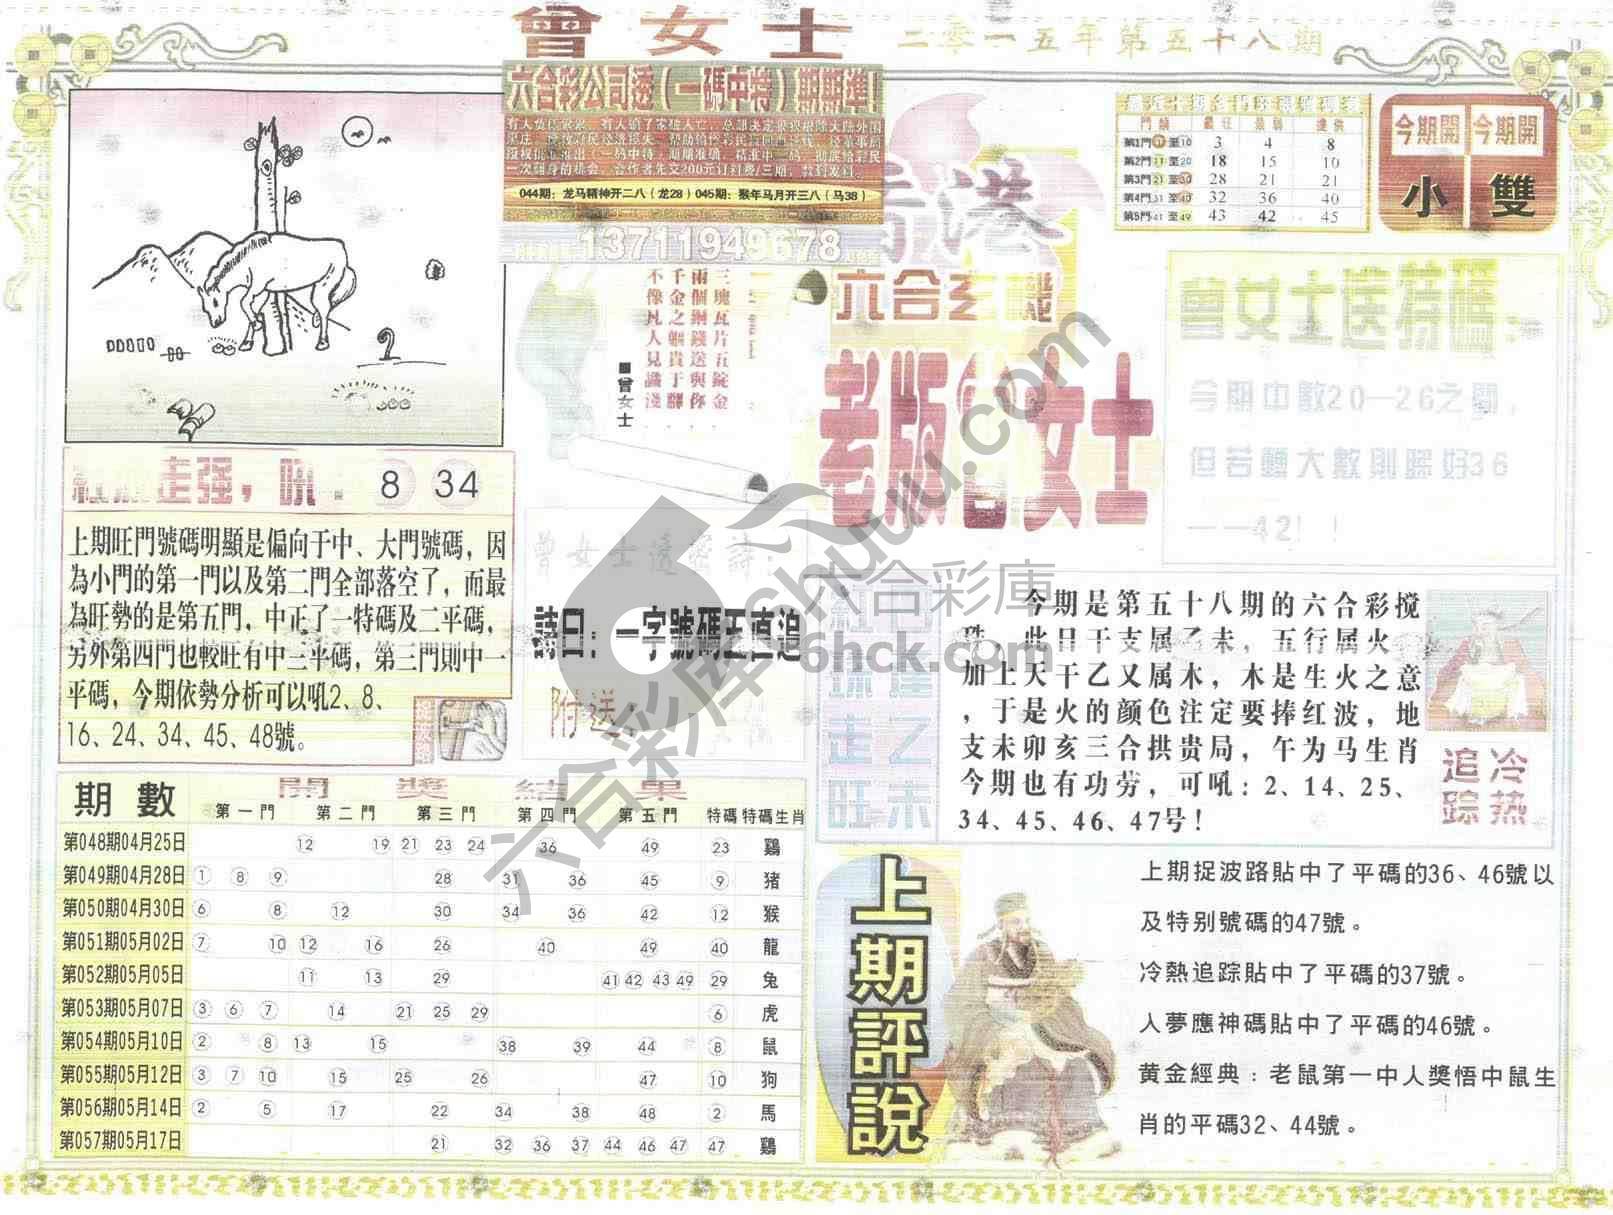 曾女士
二零一五年第五十八期
六合彩公司透（一碼中特）期期準！
044期：龙马精神开二八（龙28）045期：猴年马月开三八（马38）
13711949678
三塊瓦片五錠金
兩個銅錢送與你
千金之軀貴于腳
不像凡人見識淺
■曾女士
港
六合玄機
老版曾女士
門
第1門 1 至10 3 4 8
第2門 11 至 20 18 15 10
第3門 21 至 30 28 21 21
第4門 31 至 40 32 36 40
第5門 41 至 49 43 42 45
今期開 今期開
小 雙
曾女士送特碼：
今期中數20—26之間，
但若轉大數則睇好36
——42！！
走强，吼：8 34
上期旺門號碼明顯是偏向于中、大門號碼，因
為小門的第一門以及第二門全部落空了，而最
為旺勢的是第五門，中正了一特碼及二平碼，
另外第四門也較旺有中三平碼，第三門則中一
平碼，今期依勢分析可以吼2、8、
16、24、34、45、48號。
曾女士透密詩：
詩曰：一字號碼五直追
附送：
走之
旺未
今期是第五十八期的六合彩搅
珠，此日干支属乙未，五行属火，
加上天干乙又属木，木是生火之意
，于是火的颜色注定要捧红波，地
支未卯亥三合拱贵局，午为马生肖
今期也有功劳，可吼：2、14、25、
34、45、46、47号！
追 冷
踪 热
開獎結果
期數 第一門 第二門 第三門 第四門 第五門 特碼 特碼生肖
第048期04月25日 12 19 21 23 24 36 49 23 鷄
第049期04月28日 1 8 9 28 31 36 45 9 猪
第050期04月30日 6 8 12 30 34 36 42 12 猴
第051期05月02日 7 10 12 16 26 40 49 40 龍
第052期05月05日 11 13 29 41 42 43 49 29 兔
第053期05月07日 3 6 7 14 21 25 29 6 虎
第054期05月10日 2 8 13 15 38 39 44 8 鼠
第055期05月12日 3 7 10 15 25 26 47 10 狗
第056期05月14日 2 5 17 22 34 38 48 2 馬
第057期05月17日 21 32 36 37 44 46 47 47 鷄
上期評說
上期捉波路貼中了平碼的36、46號以
及特别號碼的47號。
冷熱追踪貼中了平碼的37號。
人夢應神碼貼中了平碼的46號。
黄金經典：老鼠第一中人獎悟中鼠生
肖的平碼32、44號。
六合彩庫
6hck.com
六合彩库shuju.com